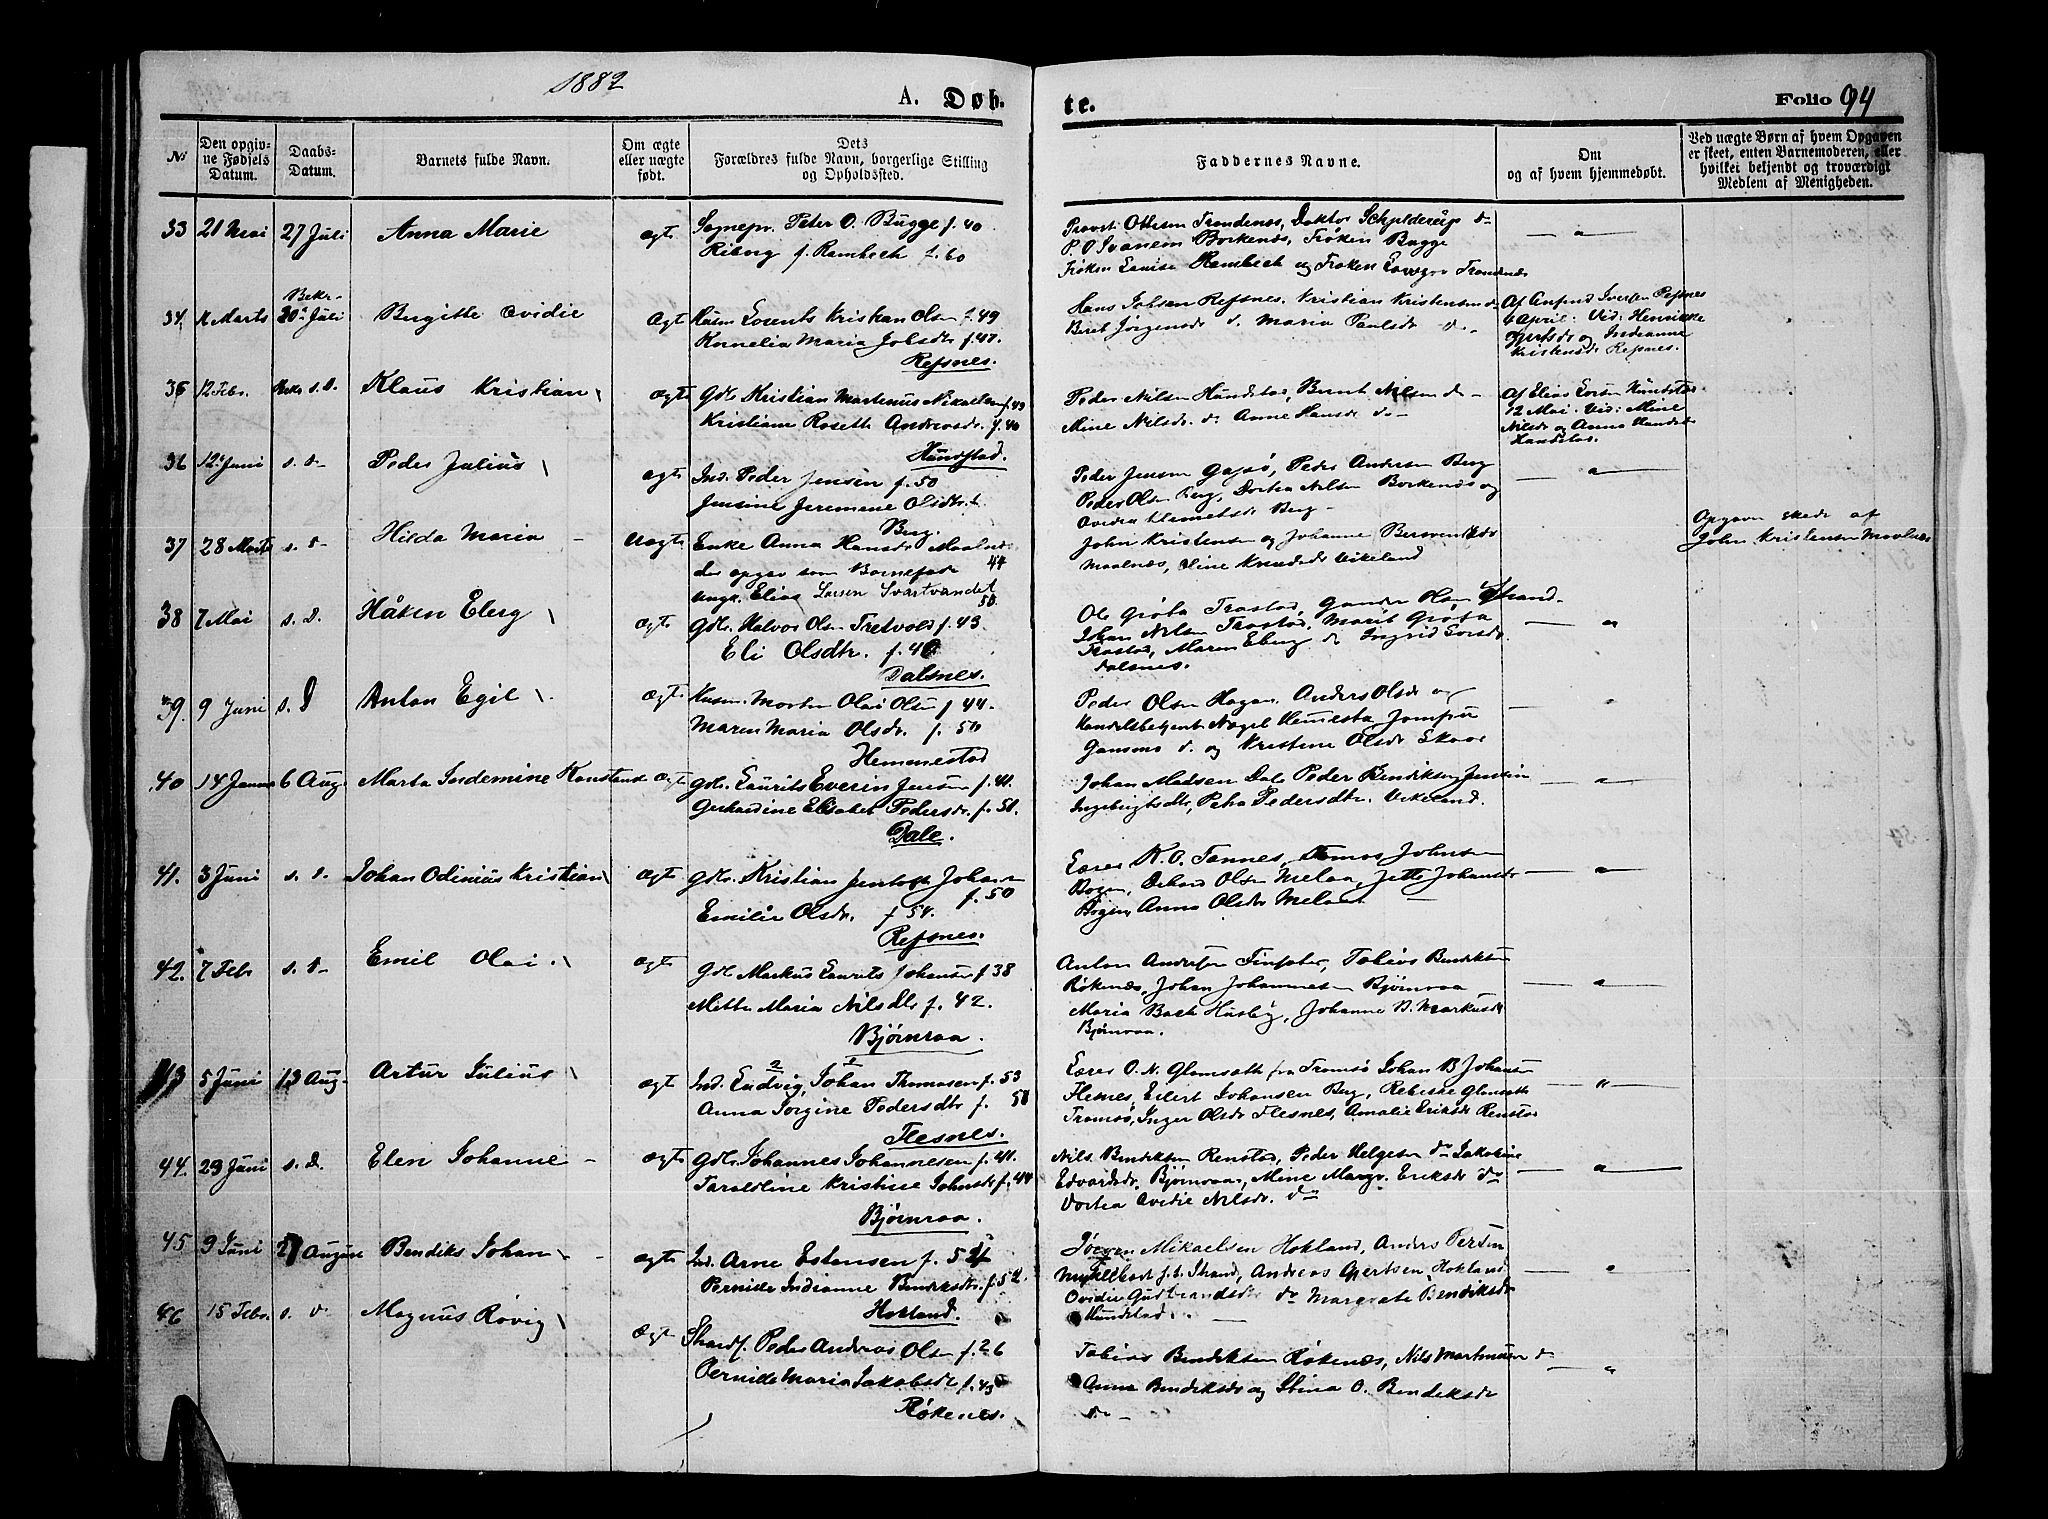 1882
A. Døb-
te.
Folio 94
No
Den opgivne Fødsels Datum.
Daabs-Datum.
Barnets fulde Navn.
Om ægte eller uægte født.
Dets Forældres fulde Navn, borgerlige Stilling og Opholdssted.
Faddernes Navne.
Om og af hvem hjemmedøbt.
Ved uægte Børn af hvem Opgaven er skeet, enten Barnemoderen, eller hvilket bekjendt og troværdigt Medlem af Menigheden.
33 21 Mai 27 Juli Anna Marie ægt Sognepr. Peter O. Bugge f. 40
f. Rambech f. 60
Provst Ottesen Trondenæs, Doktor Schjelderup d-
Borkenæs, Frøken Bugge
Frøken Louise Rambech og Frøken
34. Marts Bekr. 30 Juli Birgitte Ovidie Ægt Husm Lorents Kristian Olsen f. 49
Kornelia Maria Jobsdtr f. 47.
Refsnes.
Hans Jobsen Refsnes. Kristian Kristensen d
Beret Jørgensdr d. Maria Paulsdr d-
Af Iversen Refsnes
4 April: Vid: Henrikke
og Indianne
Kristensdr Refsnes.
35 12 Febr. Bekr s. D. Klaus Kristian ægt Gdbr Kristian Martenus Mikaelsen f. 43
Kristiane Rosette Andreasdr. f. 40
Hundstad.
Peder Nilsen Hundstad, Bernt Nilsen d -
Mine Nilsdr. d. Anne Hansdr d-
Af Elias Hundstad
12 Mai. Vid: Mine
Nilsdr og Anna
Hundstad.
36 12 Juni s. d- Peder Julius ægt Ind. Peder Jensen f. 50
Jensine Jeremine Olsdtr. f.
Berg.
Peder Jensen Peder Andersen Berg
Peder Olsen Berg, Dortea Nilsen Borkenæs og
Ovidia Berg -
37 28 Marts s. d- Hilda Maria - uægt Enke Anna Hansdr Maalnes
der opgav som Barnefader 44
ungk. Elias Larsen Svartvandet
50.
John Kristensen og Johanne
Maalnæs, Line Knudsdr Vikeland
Opgaven skede af
John Kristensen Maalnæs
38 7 Mai s. d. Håken Elerg ægt. Gdbr. Halvor Olsen Tretvold f. 43.
Eli Olsdtr. f. 40
Dalsnes.
Ole Grøta Trastad, Strand.
Johan Nilsen Trastad, Marit Grøta
Trastad, Maren Eberg d Ingrid
Dalsnes.
39. 9 Juni s. d Anton Egil ægt. Husm. Morten Olai Olsen f 44.
Maren Maria Olsdr. f. 50
Hemmestad
Peder Olsen Hagan. Anders Olsdr og
Handelsbetjent Nagel Hemmestad Jomfru
Gansmo d. og Kristine Olsdr Skaar
40 14 Januar 6 Aug. Marta Indemine Konstanse Ægt Gdbr. Laurits Everin Jensen f. 41.
Gerhardine Elisabet Pedersdr. f. 51.
Dale.
Johan Madsen Dale Peder Bendiksen
Ingebrigtsdtr, Petra Pedersdtr. Vikeland.
41. 3 Juni s. d. Johan Odinius Kristian ægt Gdbr. Kristian Jentoft Johansen
f. 50
Emilie Olsdr. f 54.
Refsnes.
Lærer K. O. Tannes, Tomas Johnsen
Bogen, Olsen Melaa, Jette Johansdr
Bogen, Anna Olsdr Melaa.
42. 7 Febr s. d- Emil Olai ægt Gdbr Markus Laurits Johansen f. 38
Mette Maria Nilsdtr f. 42.
Bjørnraa.
Anton Andersen Tobias Bendiksen
Røkenæs, Johan Johannesen Bjørnraa
Maria Bach Husby, Johanne D. Markusdr
Bjørnraa.
43 5 Juni 13 Aug. Artur Julius ægt Ind. Ludvig Johan Thomasen f. 53
Anna Jørgine Pedersdtr f. 58
Flesnes.
Lærer O. N. fra Tromsø Johan B Johansen
Flesnes, Eilert Johansen Berg, Rebekke
Tromsø, Inger Olsdr Flesnes, Amalie Eriksdr Renstad
44. 23 Juni s. d. Elen Johanne - ægt Gdbr. Johannes Johannesen f. 41.
Taraldine Kristine Johnsdr f. 44
Bjørnraa.
Nils Bendiksen Renstad, Peder Helgesen do Jakobine
Edvardsdr. Bjørnraa, Mine Margr. Eriksdr do
Dortea Ovidie Nilsdr. do
45 9 Juni 27 August Bendiks Johan - ægt Ind. Arne Estensen f. 54
Pernille Indianne Bendiksdtr. f. 52.
Hokland.
Jørgen Mikaelsen Hokland, Anders Persen
f. t. Strand, Andreas Gjertsen, Hokland
Ovidie Gudbrandsdr do Margrete Bendiksdr
Hundstad.
46 15 Febr. s. d. Magnus Røvig Ægt Peder Andreas Olsen f. 26
Pernille Maria Jakobsdr f. 43
Røkenes.
Tobias Bendiksen Røkenæs, Nils Martinusen d
Anna Bendiksdr og Stina O. Bendiksdr
d. -